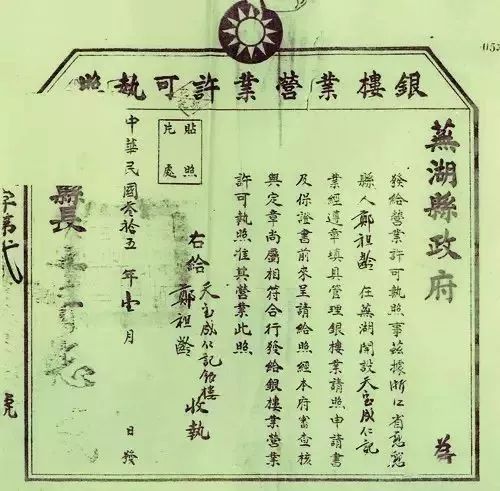 053
銀樓業營業許可執照
蕪湖縣政府 為
發給營業許可執照事茲據浙江省慈谿
縣人鄭祖齡在蕪湖開設天宝成仁記
業經遵章填具管理銀樓業請照申請書
及保證書前來呈請給照經本府審查核
與定章尚屬相符合行發給銀樓業營業
許可執照准其營業此照
右給 天宝成仁記銀樓
鄭祖齡 收執
貼照
片處
中華民國叁拾五年壹月 日發
縣長
字第 號